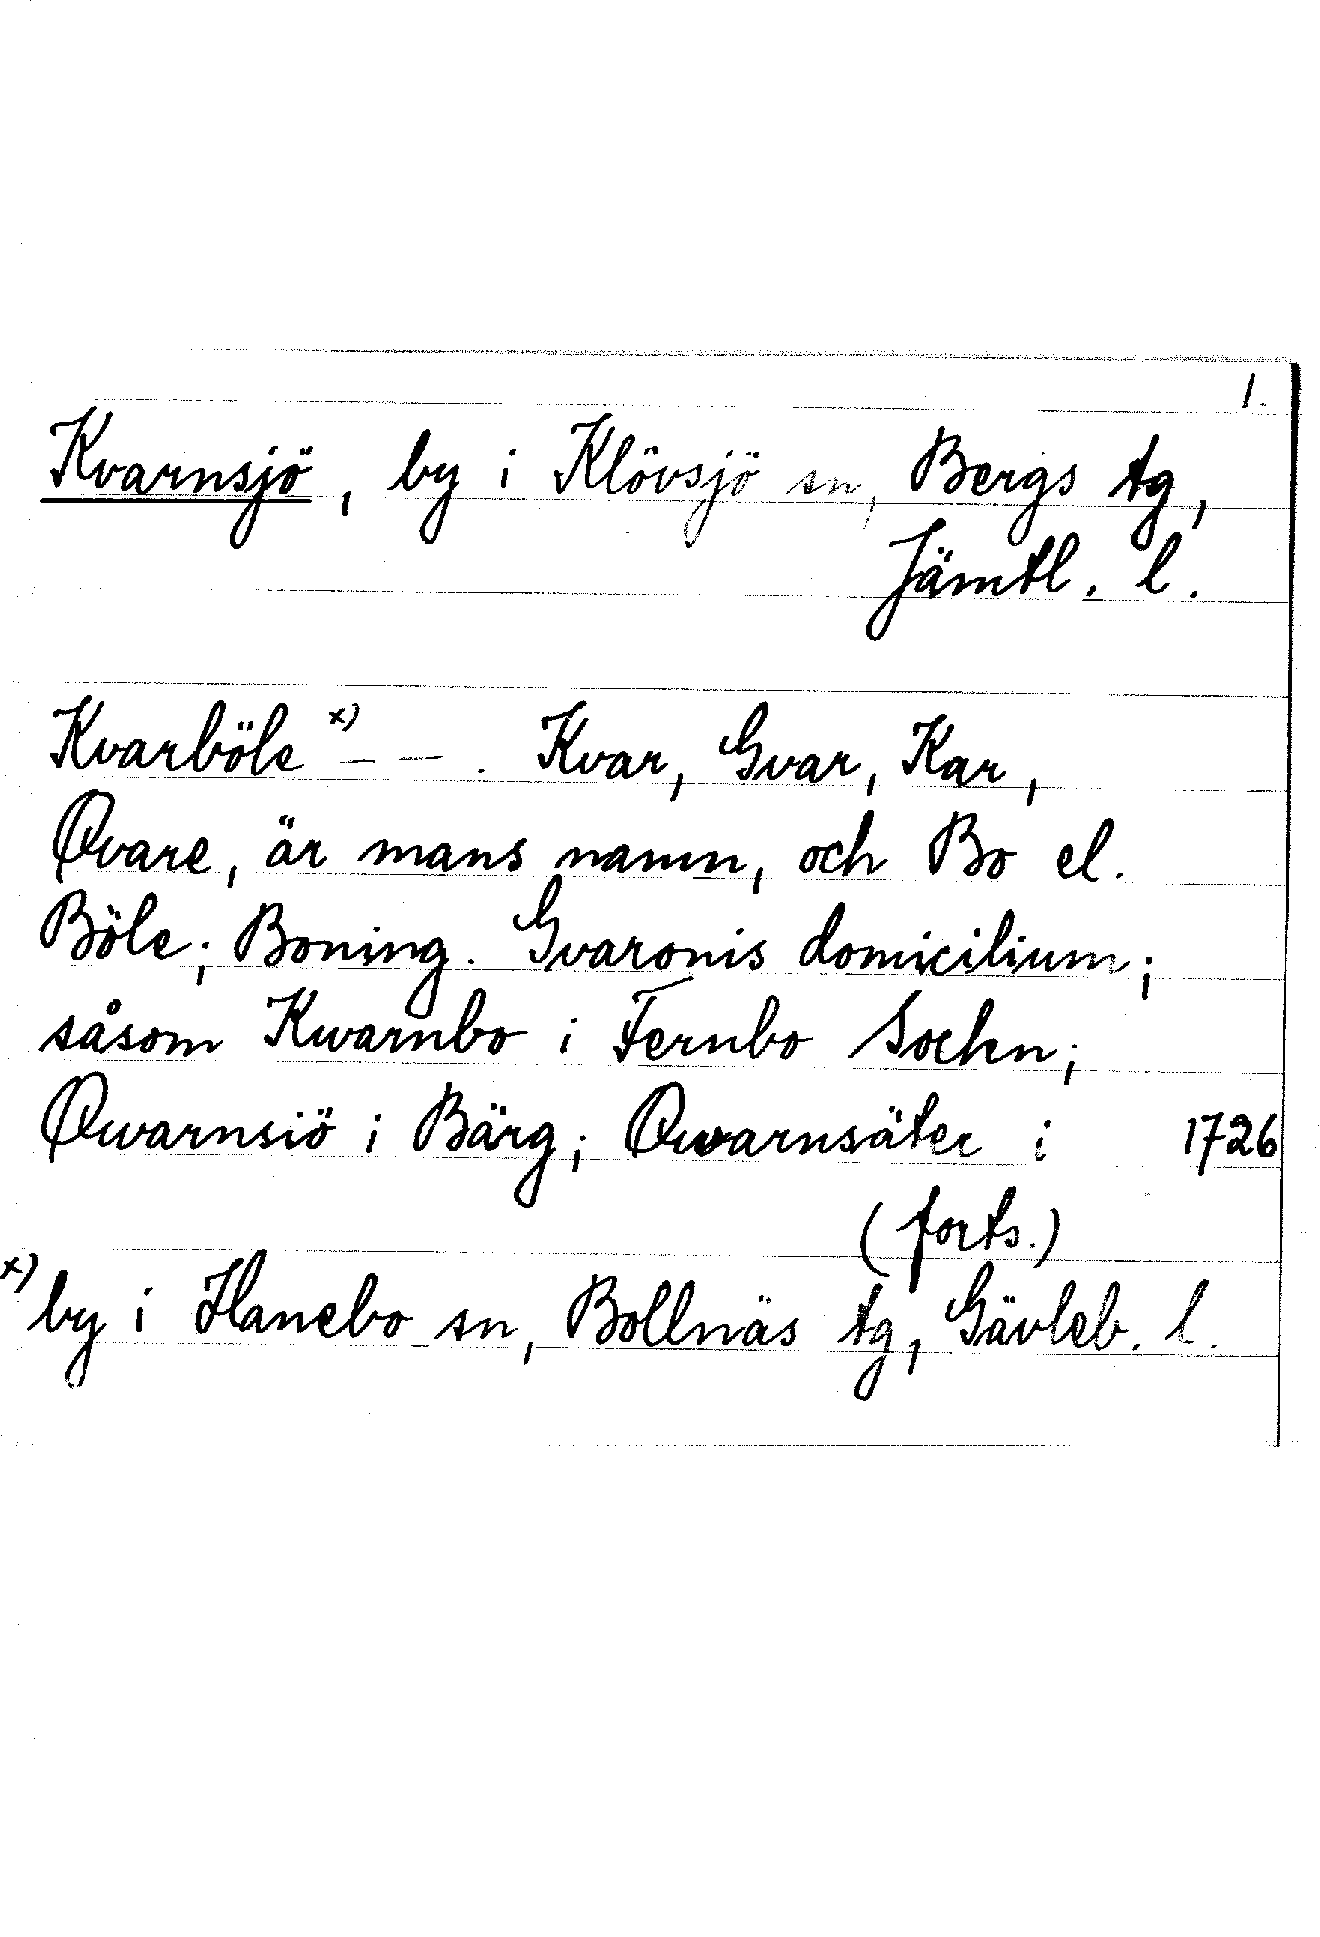 1.
Kvarnsjö, by i Klövsjö sn, Bergs tg,
Jämtl. l.
Kvarböle x) – – . Kvar, Gvar, Kar,
Qvare, är mans namn, och Bo el.
Böle; Boning. Gvaronis domicilium;
såsom Kwarnbo i Fernbo Sochn;
Qwarnsiö i Bärg; Qwarnsäter i 1726
(forts.)
x) by i Hanebo sn, Bollnäs tg, Gävleb. l.